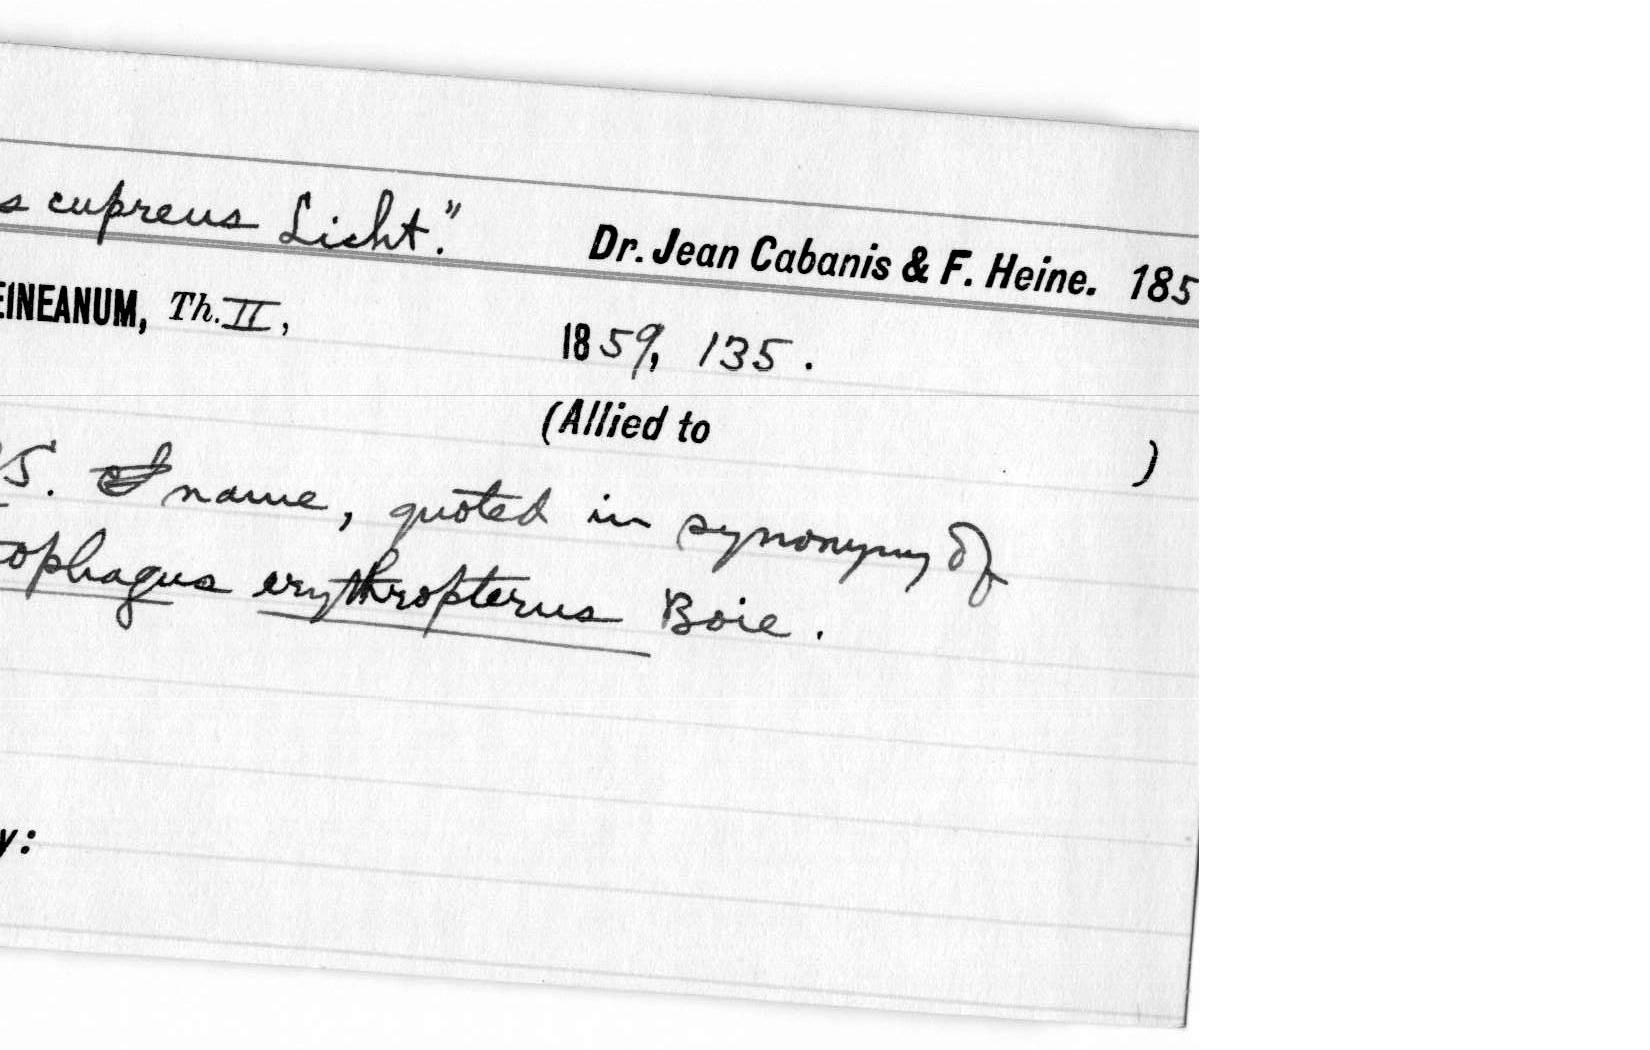 s cupreus Licht."
Dr. Jean Cabanis & F. Heine. 185
EINEANUM, Th. II,
1859, 135.
(Allied to )
5. name, quoted in synonymy of
tophagus erythropterus Boie.
y: